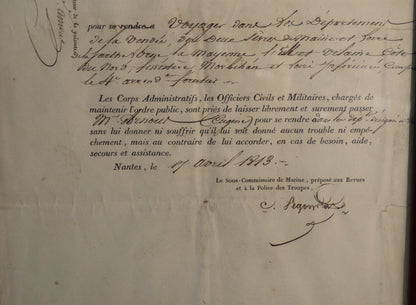 pour se rendre à voyager dans les Département
de la vendée, des Deux Sèvres, de maine et Loire
de la Sarthe, orne, la mayenne, l'ille et vilaine Côtes
du Nord, finistère, Morbihan et Loire Inférieure
le 4e arrond. forestier
Les Corps Administratifs, les Officiers Civils et Militaires, chargés de
maintenir l'ordre public, sont priés de laisser librement et surement passer
Mr. (Eugène) pour se rendre dans les dép.
sans lui donner ni souffrir qu'il lui soit donné aucun trouble ni empê-
chement, mais au contraire de lui accorder, en cas de besoin, aide,
secours et assistance.
Nantes, le 17 avril 1813.
Le Sous-Commissaire de Marine, préposé aux Revues
et à la Police des Troupes,